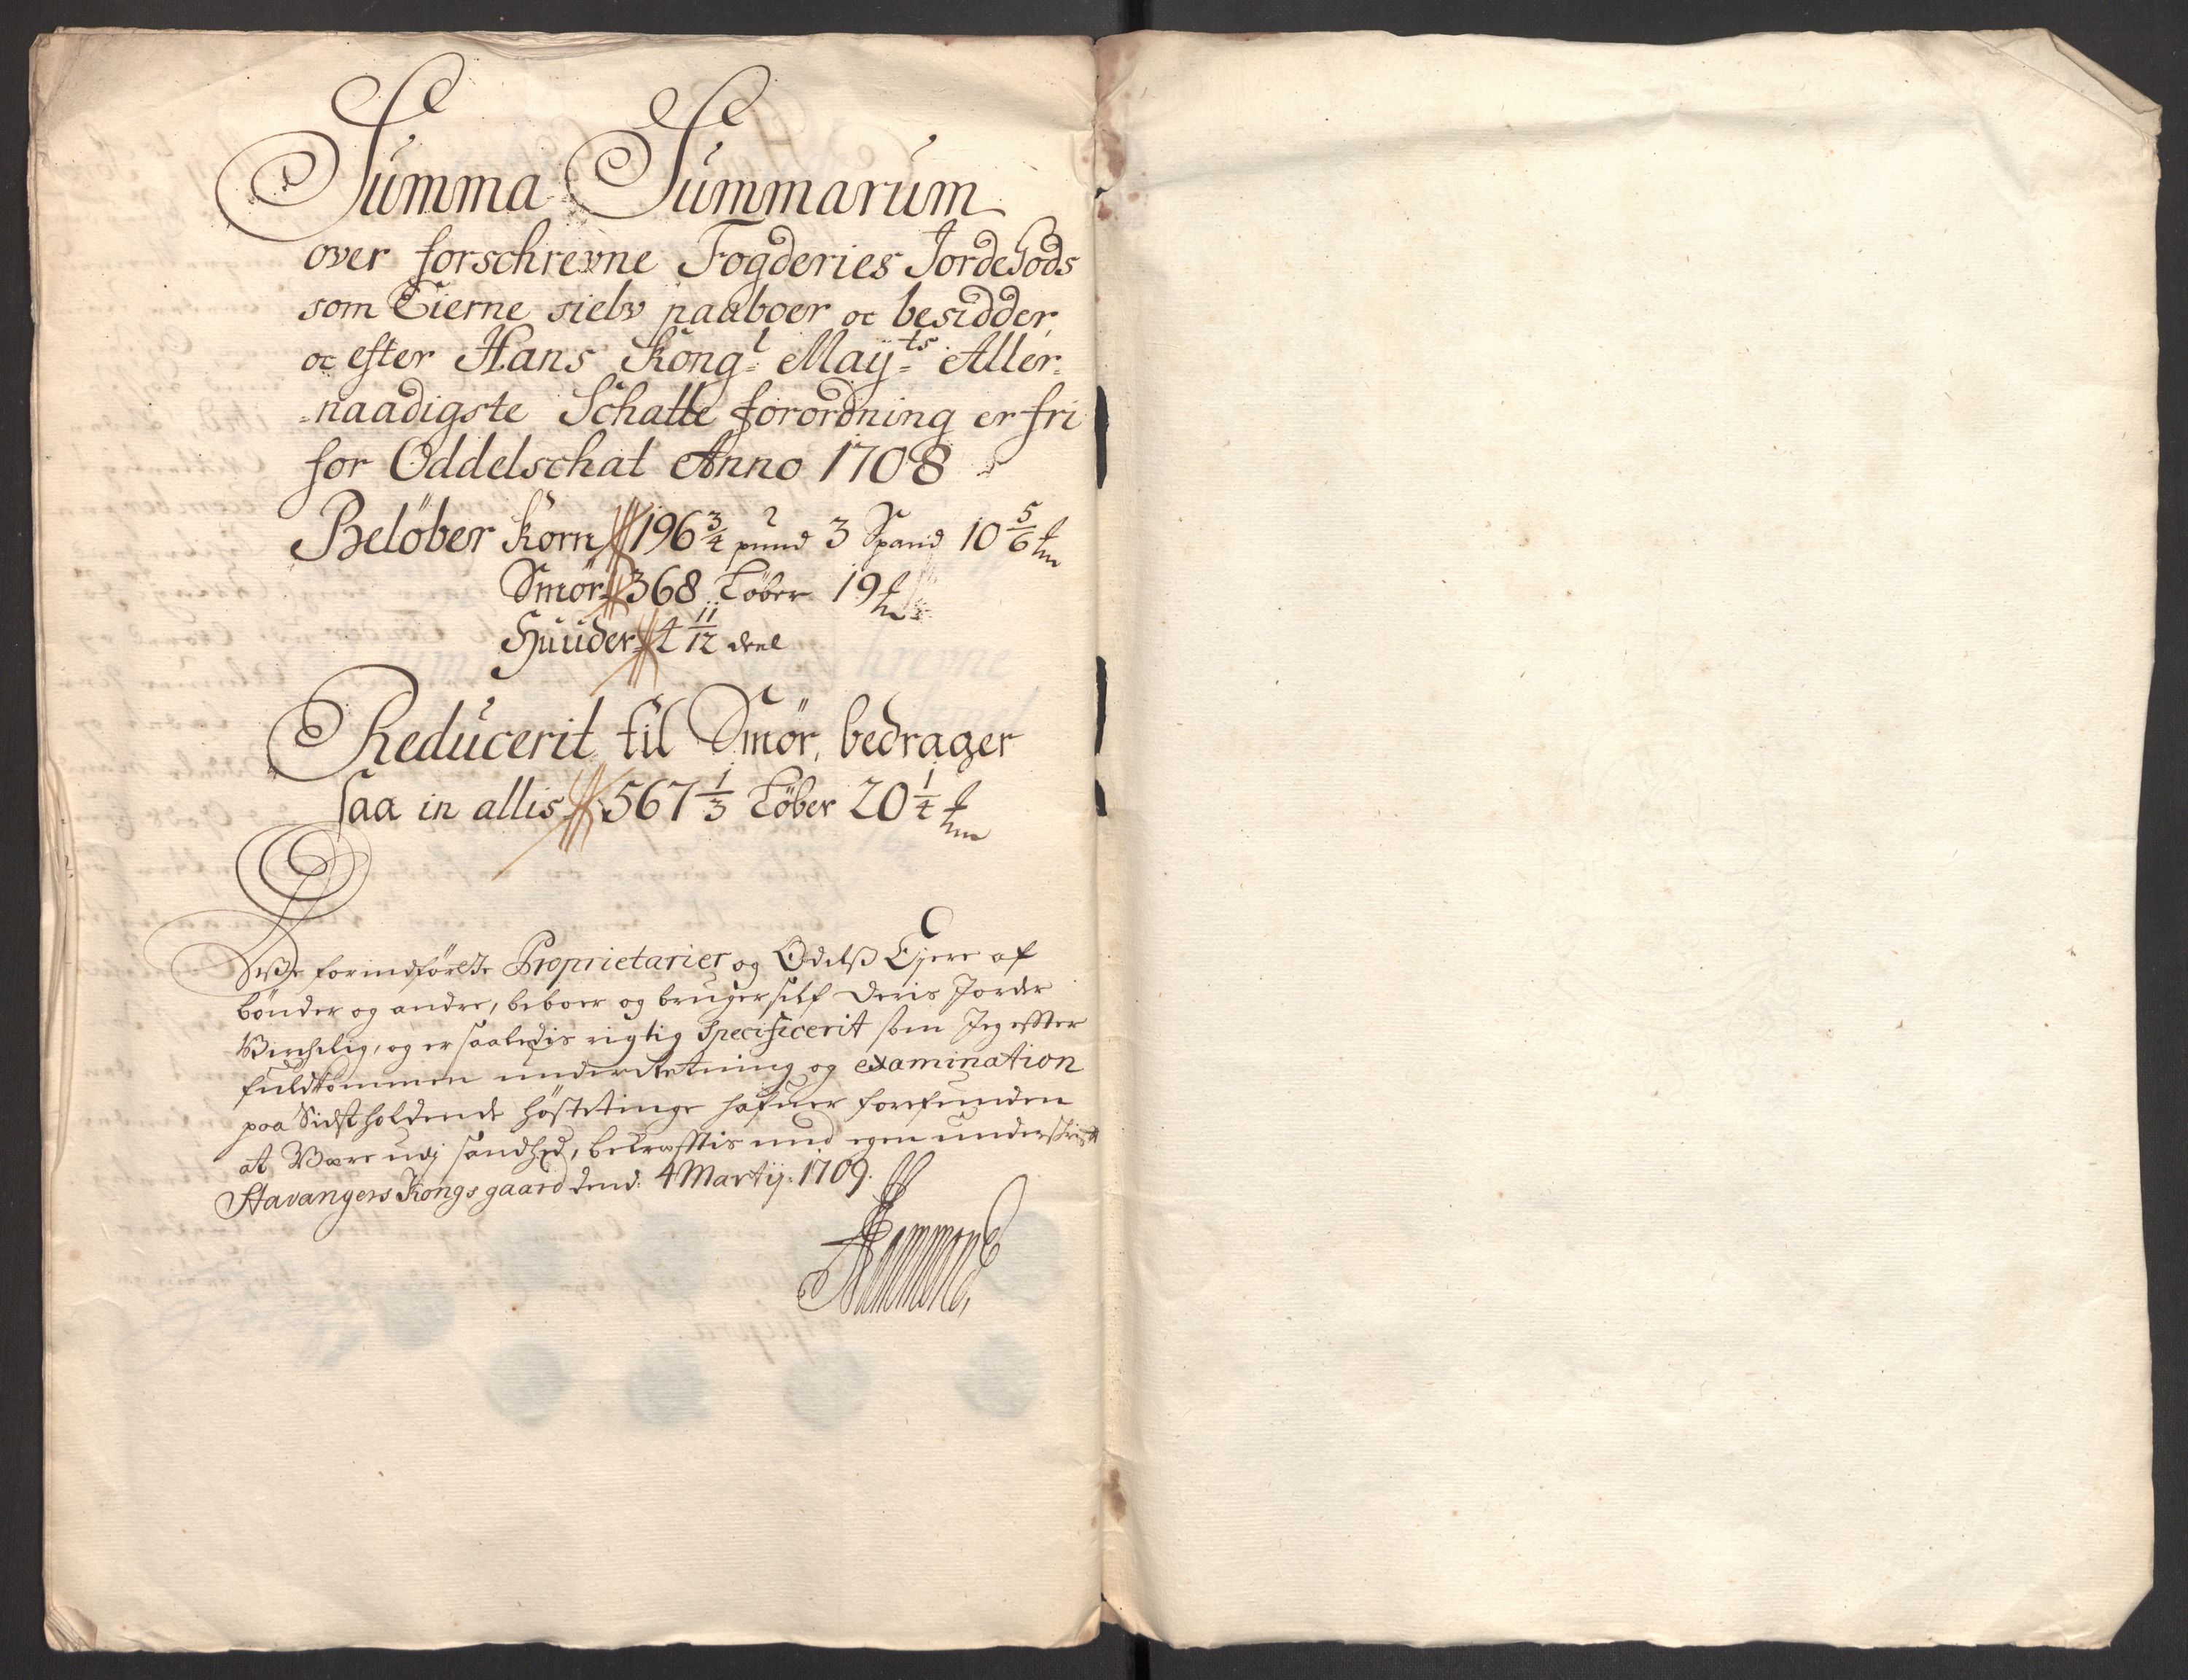 Summa Summarum
over forschrevne Fogderies JordeGods
som Eierne sielv paaboer oc besidder,
oc efter Hans Kongl: Maÿts: Aller-
-naadigste Schatte forordning er fri
for Oddelschat Anno 1708
Beløber Korn 196 3/4 pund 3 Spand 10 5/6
Smør 368 Løber 19
Huuder 4 11/12 deel
Reducerit til Smør, bedrager
saa in allis 567 1/3 Løber 20 1/4
Disse forindførte Proprietarier og Odelss Ejere af
bønder og andre, beboer og bruger self deris Jorder
Virchelig, og er saaledis rigtig Specificerit som Jeg effter
fuldkommen underRetning og examination
paa Sidstholdende høsteting hafuer forefunden
at Være udj sandhed, bekræfftis med egen underschrifft
Stavangers Kongsgaard dend: 4 Martij: 1709.